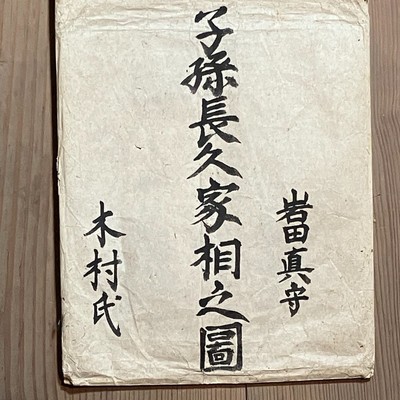 岩田真守
子孫長久家相之圖
木村氏